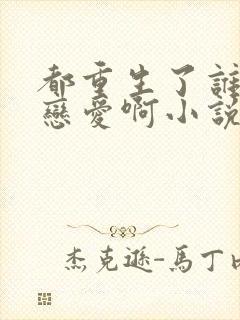 都重生了誰
戀愛啊小說
杰克遜-馬丁